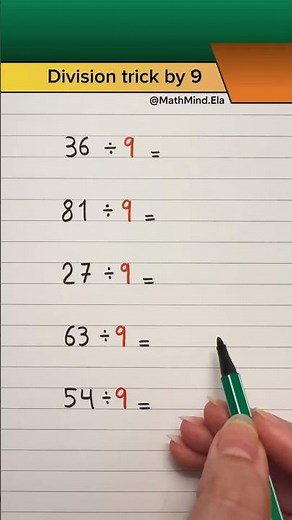 Division trick by 9
@MathMind.Ela
36 ÷ 9 =
81 ÷ 9 =
27 ÷ 9 =
63 ÷ 9 =
54 ÷ 9 =